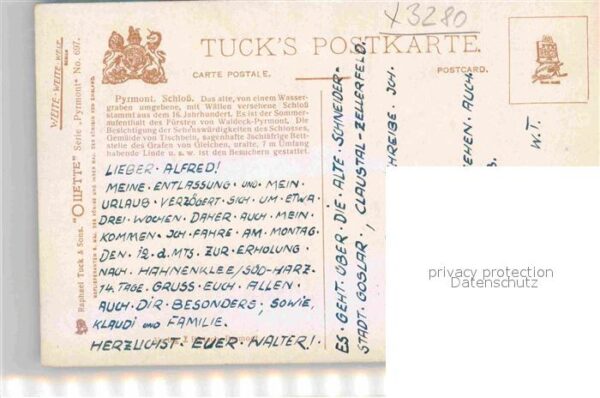 X3280
TUCK'S POSTKARTE.
CARTE POSTALE.
POSTCARD.
WEITE-WEITE-WELT
Raphael Tuck & Sons. "OILETTE" Serie „Pyrmont" No. 697.
Pyrmont. Schloß. Das alte, von einem Wasser-
graben umgebene, mit Wällen versehene Schloß
stammt aus dem 16. Jahrhundert. Es ist der Sommer-
aufenthalt des Fürsten von Waldeck-Pyrmont. Die
Besichtigung der Sehenswürdigkeiten des Schlosses,
Gemälde von Tischbein, sagenhafte Jchtaltige Bett-
stelle des Grafen von Gleichen, uralte, 7 m Umfang
habende Linde u. a. w. ist den Besuchern gestattet.
LIEBER·ALFRED!
MEINE·ENTLASSUNG·UND·MEIN·
URLAUB·VERZÖGERT·SICH·UM·ETWA·
DREI·WOCHEN·DAHER·AUCH·MEIN·
KOMMEN·JCH·FAHRE·AM·MONTAG·
DEN·12·D.MTS.·ZUR·ERHOLUNG·
NACH·HAHNENKLEE/SÜD-HARZ·
14·TAGE·GRUSS·EUCH·ALLEN·
AUCH·DIR·BESONDERS; SOWIE,
KLAUDI UND FAMILIE.
HERZLICHST·EUER·WALTER!·
ES·GEHT·ÜBER·DIE·ALTE·SCHNEIDER-
STADT·GOSLAR, CLAUSTAL-ZELLERFELD.
HREIBE·JCH·
EHEN·AUCH·
W.T.
privacy protection
Datenschutz